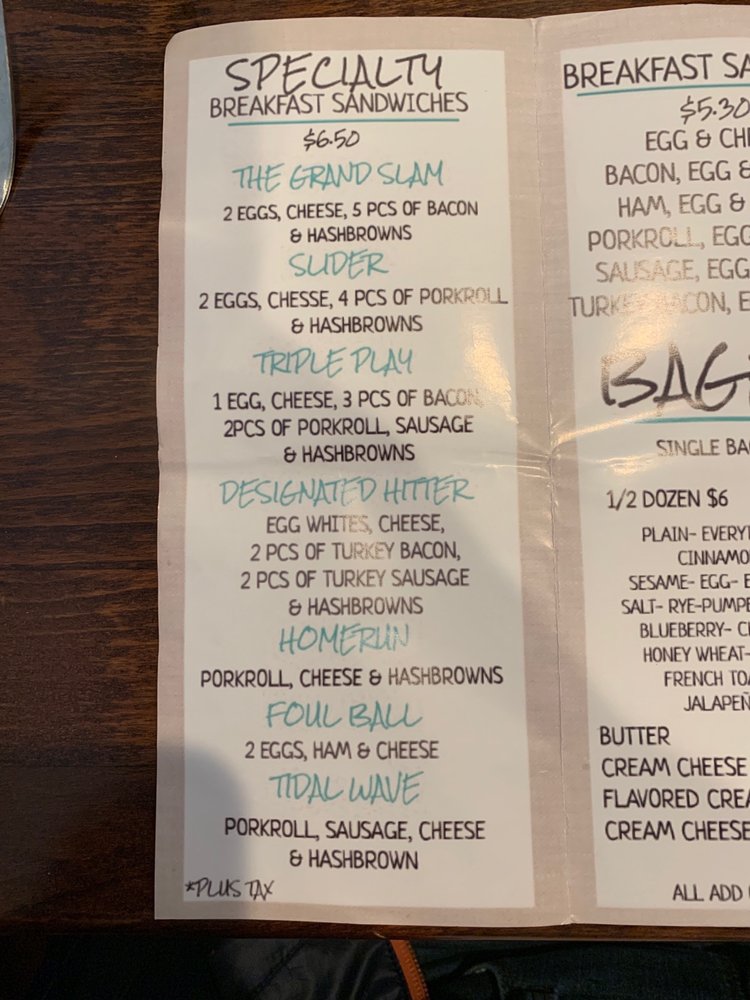 SPECIALTY
BREAKFAST SANDWICHES
$6.50
THE GRAND SLAM
2 EGGS, CHEESE, 5 PCS OF BACON
& HASHBROWNS
SLIDER
2 EGGS, CHESSE, 4 PCS OF PORKROLL
& HASHBROWNS
TRIPLE PLAY
1 EGG, CHEESE, 3 PCS OF BACON,
2PCS OF PORKROLL, SAUSAGE
& HASHBROWNS
DESIGNATED HITTER
EGG WHITES, CHEESE,
2 PCS OF TURKEY BACON,
2 PCS OF TURKEY SAUSAGE
& HASHBROWNS
HOMERUN
PORKROLL, CHEESE & HASHBROWNS
FOUL BALL
2 EGGS, HAM & CHEESE
TIDAL WAVE
PORKROLL, SAUSAGE, CHEESE
& HASHBROWN
*PLUS TAX
BREAKFAST SA
$5.30
EGG & CH
BACON, EGG &
HAM, EGG &
PORKROLL, EGG
SAUSAGE, EGG
TURKEY BACON, E
BAG
SINGLE BA
1/2 DOZEN $6
PLAIN- EVERY
CINNAMO
SESAME- EGG- E
SALT- RYE-PUMPE
BLUEBERRY- C
HONEY WHEAT-
FRENCH TO
JALAPEÑ
BUTTER
CREAM CHEESE
FLAVORED CREA
CREAM CHEESE
ALL ADD